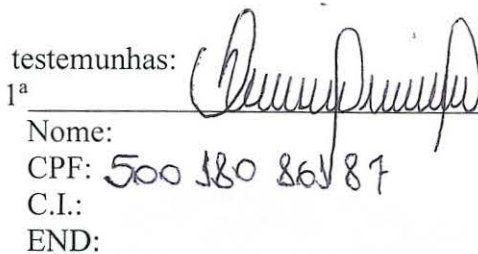 testemunhas:
1ª
Nome:
CPF: 500 180 861 87
C.I.:
END: